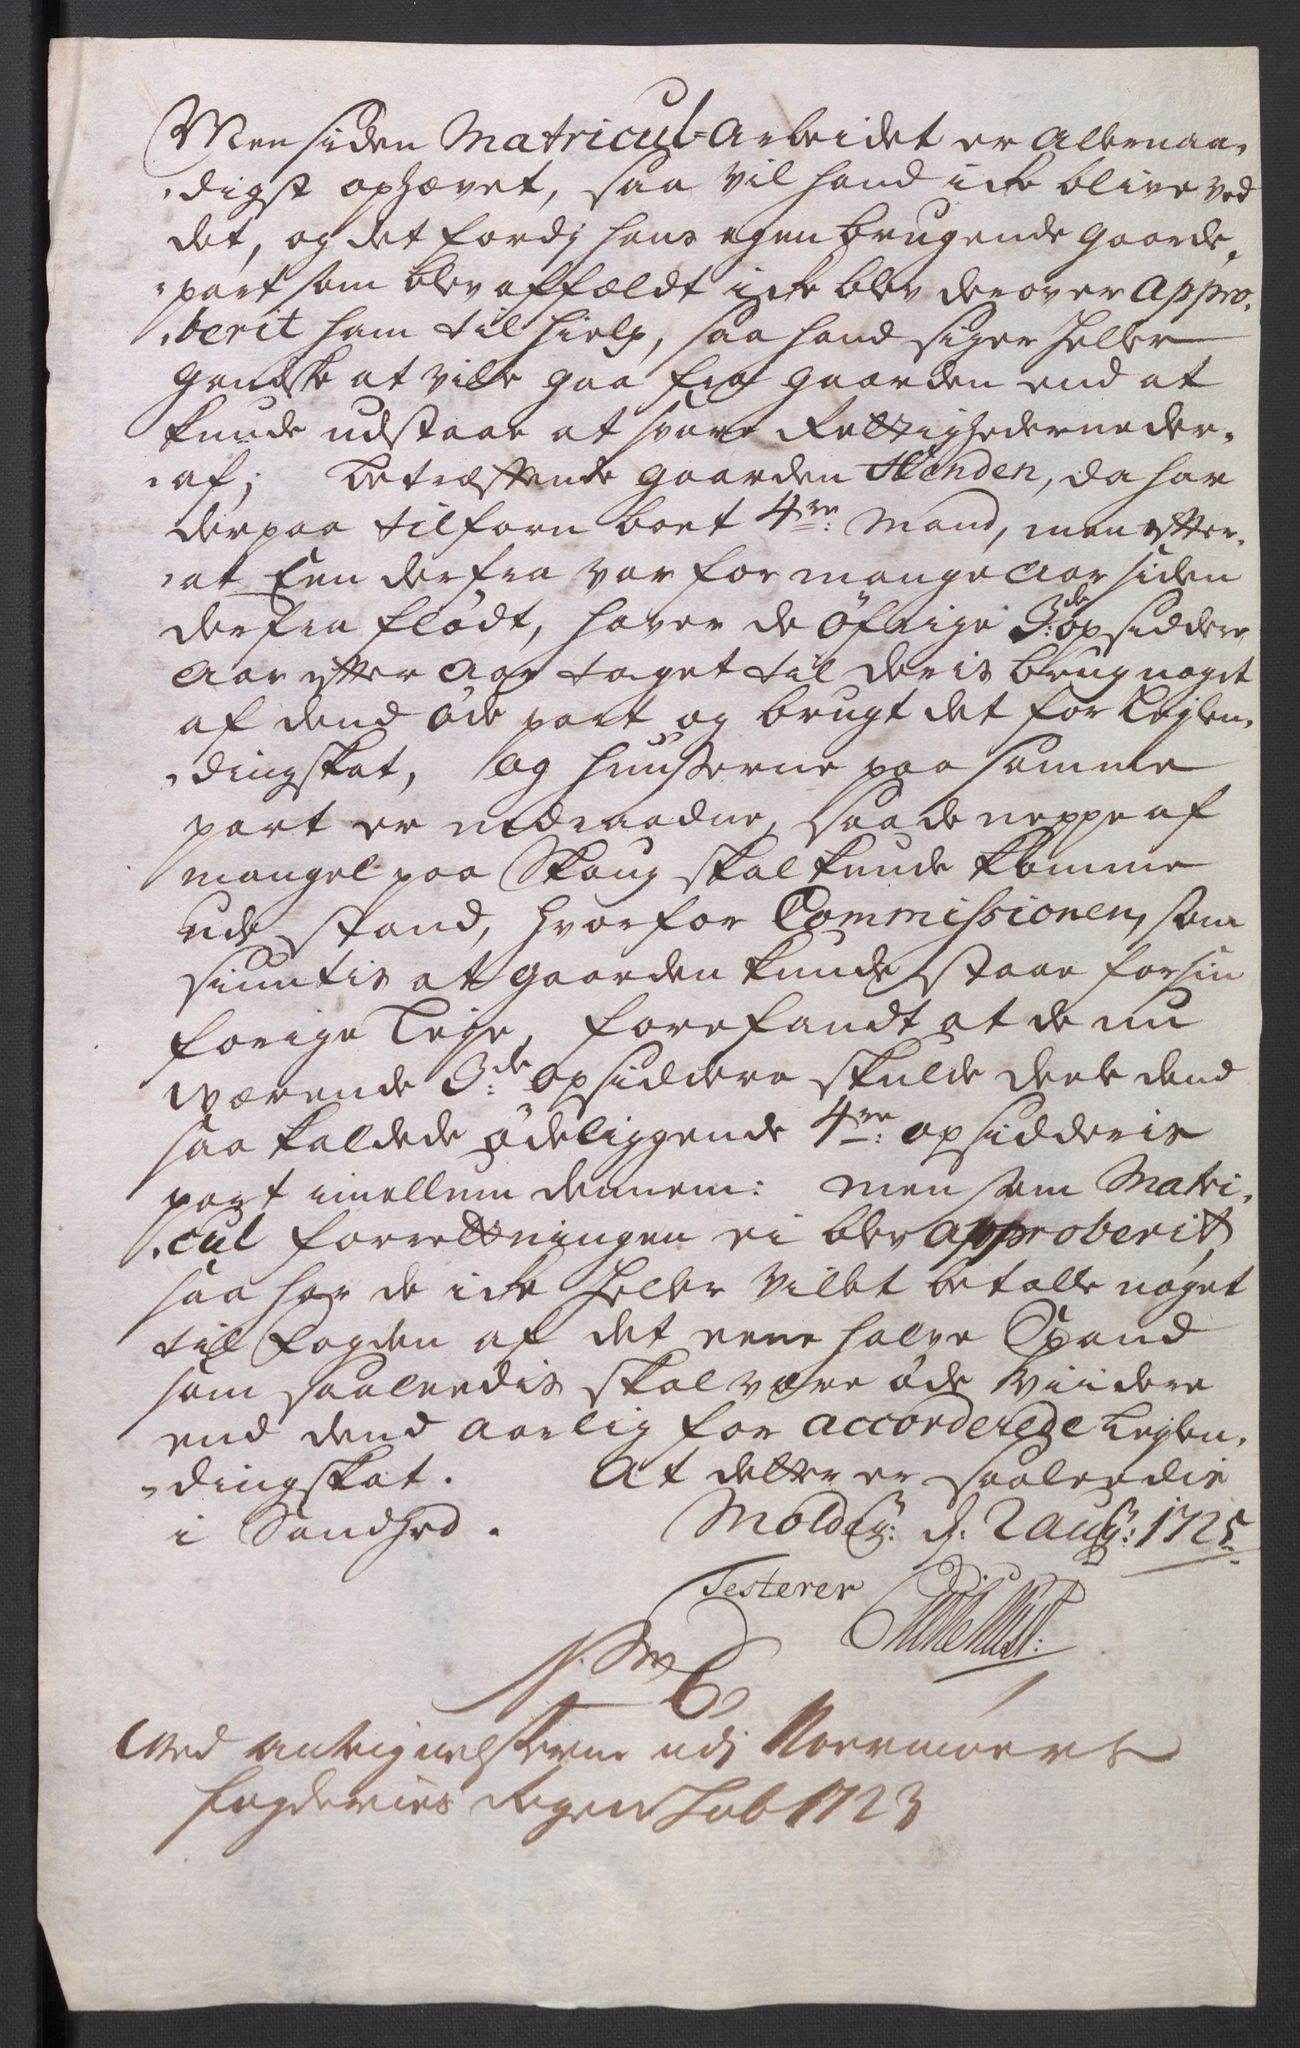 Men siden Matricul-Arbeidet er Allernaa-
digst ophævet, saa vil hand icke blive ved
det, og det fordj hans egen brugende gaarde
part som blev affældt icke blev derover Appro-
berit ham til hielp, saa hand siger heller
gandske at ville gaa fra gaarden end at
kunde udstaae at svare Rettighederne der-
af; Betræffende gaarden Henden, da har
derpaa tilforn boet 4re: Mand, men efter
at Een derfra var for mange Aar siden
derfra flödt, haver de öfrige 3de: opsiddere
Aar efter Aar taget til deris brug noget
af dend öde part og brugt det for Leylen-
dingskat, og huusserne paa samme
part er nedraadne, saa de neppe af
mangel paa Skoug skal kunde komme
ude stand, hvorfor Commissionen, som
siuntis at gaarden kunde staae for sin
forige Leye, forefandt at de nu
værende 3de: Opsiddere skulde deele dend
saa kaldede ödeliggende 4re: opsidderis
part imellum dennem: men som Matri-
cul forrettningen ei blev approberit,
saa har de icke heller villet betalle noget
til Fogden af det eene halve Spand
som saaleedis skal være öde viidere
end dend aarlig for accorderede Leylen-
dingskat. At dette er saaleedis
i Sandhed. Molde d: 2 Aug: 1725
Testerer
Ved Antegnelserne udj Noermøers
fogderies Regenskab 1723